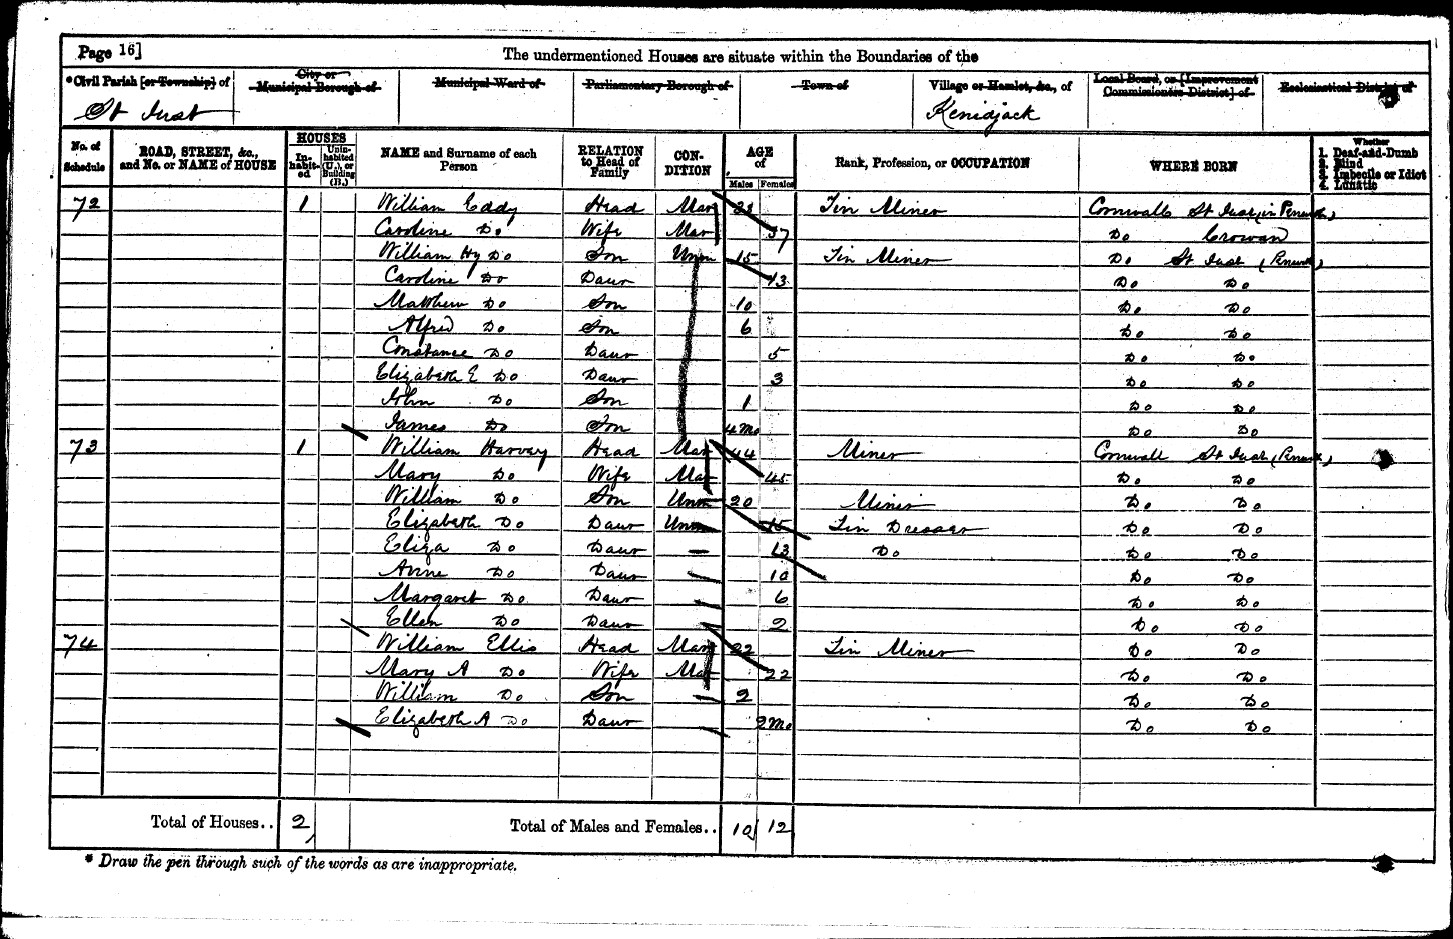 Page 16]
The undermentioned Houses are situate within the Boundaries of the
*Civil Parish [or Township] of
City or Municipal Borough of
Municipal Ward of
Parliamentary Borough of
Town of
Village or Hamlet, &c., of
Local Board, or [Improvement Commissioners District] of
Ecclesiastical District of
St Just
Kenidjack
No. of Schedule
ROAD, STREET, &c., and No. or NAME of HOUSE
HOUSES
In-habit-ed
Unin-habited (U.), or Building (B.)
NAME and Surname of each Person
RELATION to Head of Family
CON-DITION
AGE of
Males Females
Rank, Profession, or OCCUPATION
WHERE BORN
Whether
1. Deaf-and-Dumb
2. Blind
3. Imbecile or Idiot
4. Lunatic
72 1 William Eddy Head Mar Tin Miner Cornwall St Just in Penwith
Caroline Do Wife Mar 37 Do Crowan
William Hy Do Son Unm 15 Tin Miner Do St Just (Penwith)
Caroline Do Daur 13 Do Do
Matthew Do Son 10 Do Do
Alfred Do Son 6 Do Do
Constance Do Daur 5 Do Do
Elizabeth E Do Daur 3 Do Do
John Do Son 1 Do Do
James Do Son 4 Mo Do Do
73 1 William Harvey Head Mar 44 Miner Cornwall St Just (Penwith)
Mary Do Wife Mar 45 Do Do
William Do Son Unm 20 Miner Do Do
Elizabeth Do Daur Unm 15 Tin Dresser Do Do
Eliza Do Daur — 13 Do Do Do
Anne Do Daur — 10 Do Do
Margaret Do Daur — 6 Do Do
Ellen Do Daur — 2 Do Do
74 William Ellis Head Mar 22 Tin Miner Do Do
Mary A Do Wife Mar 22 Do Do
William Do Son — 2 Do Do
Elizabeth A Do Daur — 2 Mo Do Do
Total of Houses.. 2 Total of Males and Females.. 10 12
* Draw the pen through such of the words as are inappropriate.